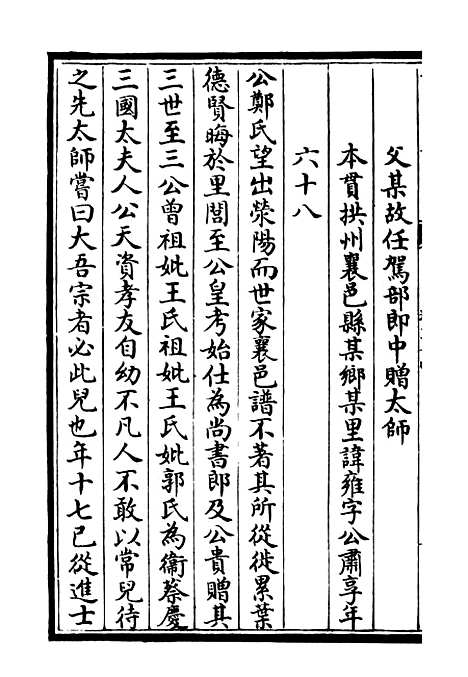 父某故任駕部郎中贈太師
本貫拱州襄邑縣某鄉某里諱雍字公肅享年
六十八
公鄭氏望出滎陽而世家襄邑譜不著其所從徙累葉
德賢晦於里閭至公皇考始仕為尚書郎及公貴贈其
三世至三公曾祖妣王氏祖妣王氏妣郭氏為衞蔡慶
三國太夫人公天資孝友自幼不凡人不敢以常兒待
之先太師嘗曰大吾宗者必此兒也年十七已從進士